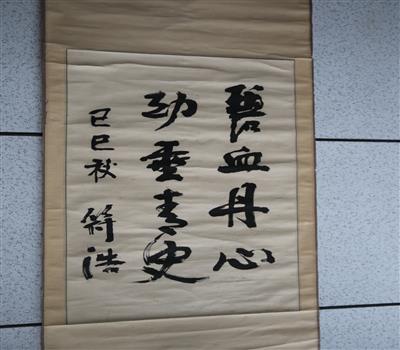 碧血丹心
功垂青史
己巳秋 符浩